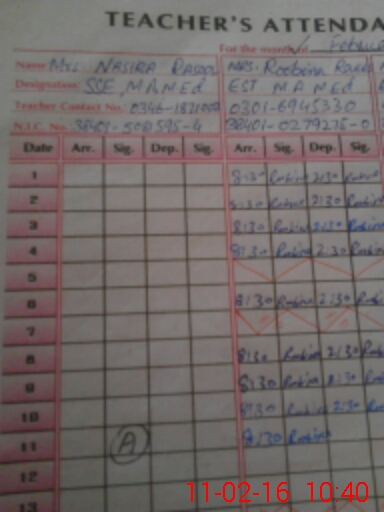 TEACHER'S ATTENDA
For the month of Februa
Name Mrs. NASIRA RASOOL MRS. Roobina
Designation: SSE, M.A M.Ed EST M A M Ed
Teacher Contact No. 0301-6945330
N.I.C. No. 38401-0279275-0
Date Arr. Sig. Dep. Sig. Arr. Sig. Dep. Sig.
1 8:30 Robina 2:30
2 8:30 2:30
3 8:30 Robina 2:30 Robina
4 8:30 Robina 2:30 Robina
5
6 8:30 Robina 2:30 Robina
7
8 8:30 Robina 2:30 Robina
9 8:30 Robina 2:30 Robina
10 8:30 Robina 2:30 Rob
11 A 8:30 Robina
12
13
11-02-16 10:40